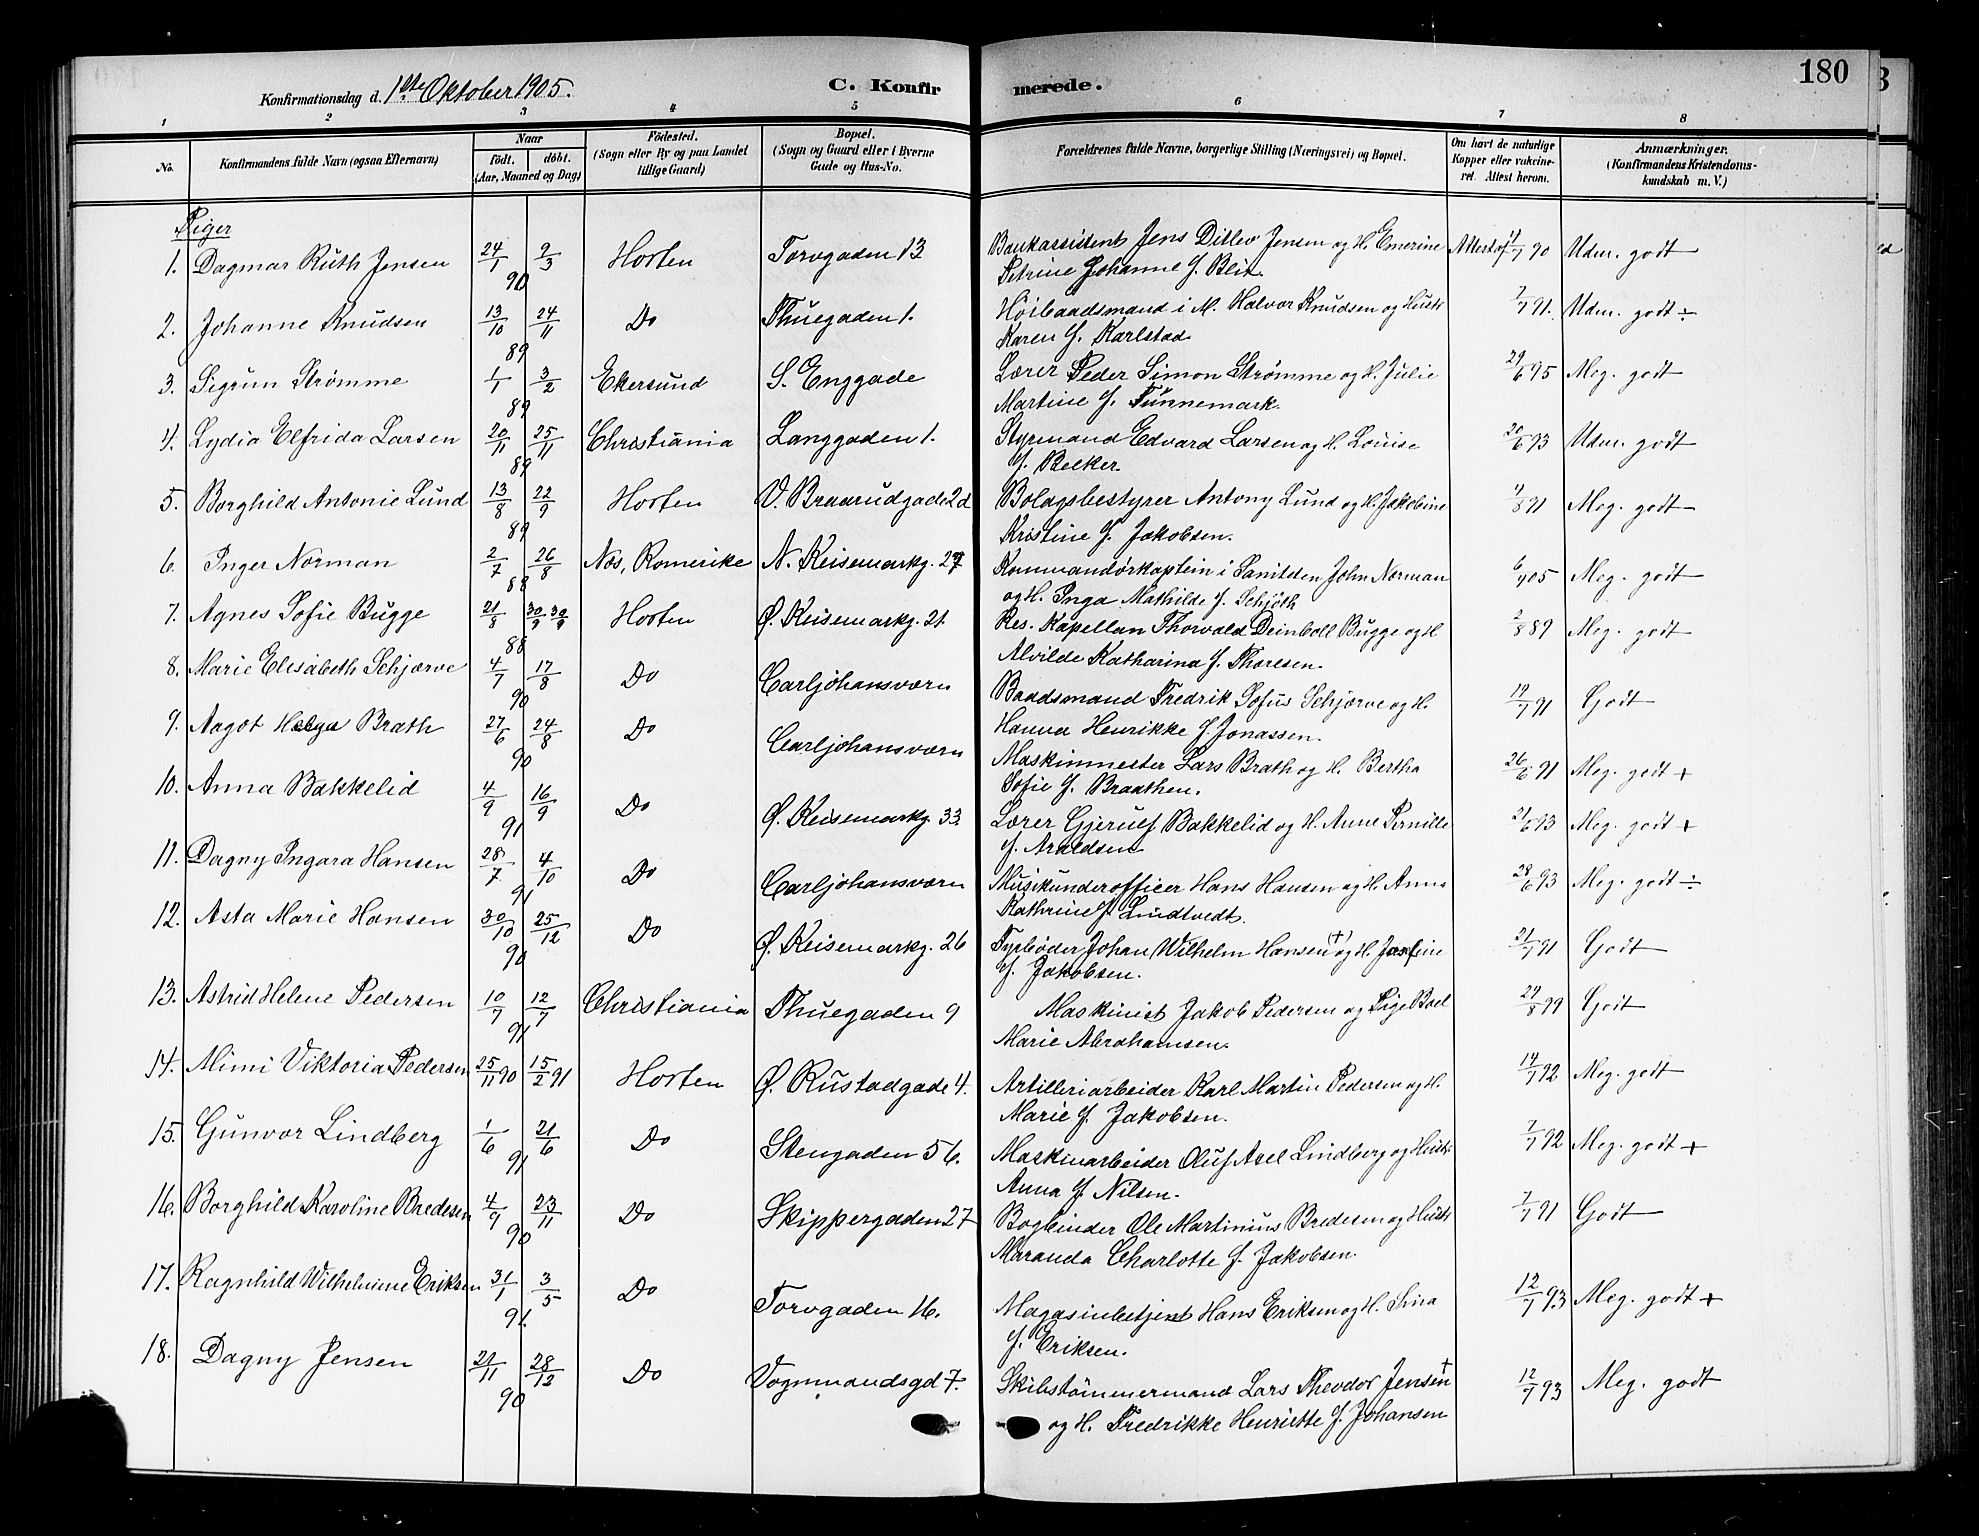 180
Konfirmationsdag d. 1ste Oktober 1905.
C. Konfirmerede.
1 2 3 4 5 6 7 8
No. Konfirmandens fulde Navn (ogsaa Efternavn) Naar født. døbt. (Aar, Maaned og Dag) Fødested. (Sogn eller By og paa Landet tillige Gaard) Bopæl. (Sogn og Gaard eller i Byerne Gade og Hus-No. Forældrenes fulde Navne, borgerlige Stilling (Næringsvei) og Bopæl. Om havt de naturlige Kopper eller vakcineret. Attest herom. Anmærkninger. (Konfirmandens Kristendomskundskab m. V.)
Piger
1. Dagmar Ruth Jensen 24/1 9/3 90 Horten Torvgaden 13 Bankassistent Jens Ditlev Jensen og H. Emerine Attest af 11/7 90 Udm. godt
Petrine Johanne f. Blix.
2. Johanne Knudsen 13/10 24/11 89 Do Thuegaden 1. Høibaadsmand i M. Halvor Knudsen og Hustr 7/7 91. Udm. godt ÷
Karen f. Karlstad
3. Sigrun Strømme 1/1 3/2 89 Ekersund S. Enggade Lærer Peder Simon Strømme og H. Julie 29/6 95 Meg. godt
Martine f. Tünnemark.
4. Lydia Elfrida Larsen 20/11 25/11 89 Christiania Langgaden 1. Styrmand Edvard Larsen og H. Louise 20/6 93 Udm. godt
f. Becker.
5. Borghild Antonie Lund 13/8 22/9 89 Horten V. Braarudgade 2d Bolagsbestyrer Antony Lund og H. Jakobine 4/8 91 Meg. godt
Kristine f. Jakobsen.
6. Inger Norman 2/7 26/8 88 Nes, Romerike N. Keisemarkg. 27 Kommandørkaptein i Saniteten John Norman 6/7 05 Meg. godt
og H. Inga Mathilde f. Schjøth
7. Agnes Sofie Bugge 21/8 30/9 30/9 88 Horten Ø. Keisemarkg. 21. Res. Kapellan Thorvald Deinboll Bugge og H 2/8 89 Meg. godt
Alvilde Katharina f. Thoresen.
8. Marie Elisabeth Schjærve 4/7 17/8 90 Do Carljohansværn Baadsmand Fredrik Sofus Schjærve og H. 19/7 91 Godt
Hanna Henrikke f. Jonassen.
9. Aagot Helga Brath 27/6 24/8 90 Do Carljohansværn Maskinmester Lars Brath og H. Bertha 26/6 91 Meg. godt +
Sofie f. Braathen.
10. Anna Bakkelid 4/9 16/9 91 Do Ø. Keisemarkg. 33. Lærer Gjerulf Bakkelid og H. Anne Pernille 21/6 93 Meg. godt +
f. Araldsen
11. Dagny Ingara Hansen 28/7 4/10 91 Do Carljohansværn Musikunderofficer Hans Hansen og H. Anna 28/6 93 Meg. godt ÷
Kathrine f. Lindtvedt.
12. Asta Marie Hansen 30/10 25/12 90 Do Ø. Keisemarkg. 26 Fyrbøder Johan Wilhelm Hansen + og H. Josefine 21/7 91 Godt
f. Jakobsen.
13. Astrid Helene Pedersen 10/7 12/7 91 Christiania Thuegaden 9 Maskinist Jakob Pedersen og Pige Boel 29/8 99 Godt
Marie Abrahamsen.
14. Mimi Viktoria Pedersen 25/11 90 15/2 91 Horten Ø. Rustadgade 4. Artilleriarbeider Karl Martin Pedersen og H. 14/7 92 Meg. godt
Marie f. Jakobsen.
15. Gunvor Lindberg 1/6 21/6 91 Do Stengaden 56. Maskinarbeider Oluf Axel Lindberg og Hustr 7/7 92 Meg. godt +
Anna f. Nilsen.
16. Borghild Karoline Bredesen 4/9 23/11 90 Do Skippergaden 27 Bogbinder Ole Martinius Bredesen og Hustr 7/7 91 Godt
Maranda Charlotte f. Jakobsen.
17. Ragnhild Wilhelmine Eriksen 31/1 3/5 91. Do Torvgaden 16. Magasinbetjent Hans Eriksen og H. Sina 12/7 93 Meg. godt +
f. Eriksen.
18. Dagny Jensen 21/11 28/12 90 Do Vognmandsgd 7. Skibstømmermand Lars Theodor Jensen + 12/7 93 Meg. godt
og H. Fredrikke Henriette f. Johansen